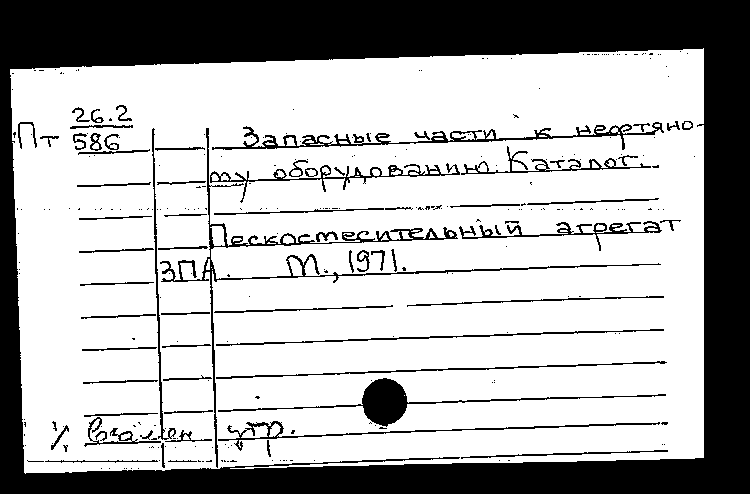 26.2
Пт 586
Запасные части к нефтяно-
му оборудованию. Каталог.
Пескосмесительный агрегат
ЗПА. М., 1971.
взамен утр.